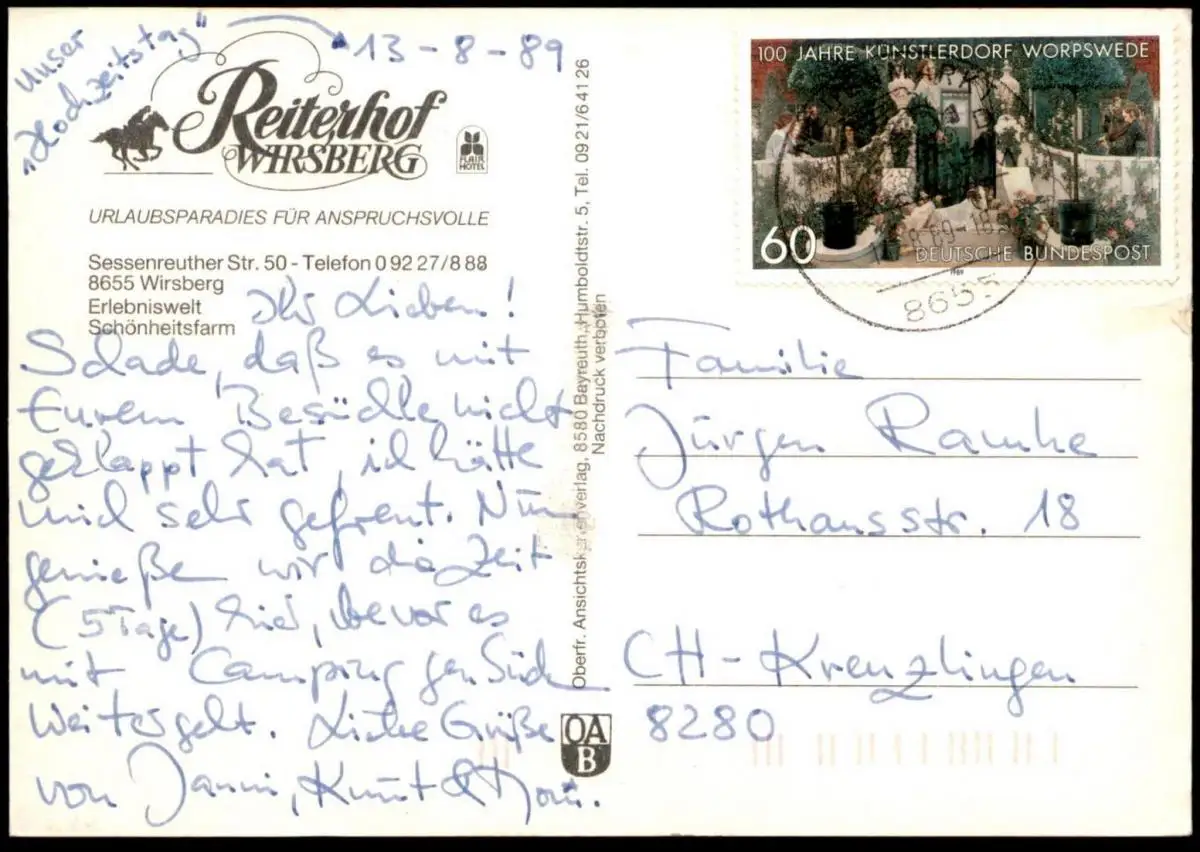 Unser
„Hochzeitstag"
13-8-89
Reiterhof
WIRSBERG
FLAIR
HOTEL
URLAUBSPARADIES FÜR ANSPRUCHSVOLLE
Sessenreuther Str. 50 - Telefon 0 92 27/8 88
8655 Wirsberg
Erlebniswelt
Schönheitsfarm
Ihr Lieben!
Schade, daß es mit
Eurem Besüchle nicht
geklappt hat, ich hätte
mich sehr gefreut. Nun
genießen wir die Zeit
(5 Tage) hier, bevor es
mit Camping gen Süden
weitergeht. Liebe Grüße
von Janni, Knut &
Oberfr. Ansichtskartenverlag, 8580 Bayreuth, Humboldtstr. 5, Tel. 09 21/6 41 26
Nachdruck verboten
OA
B
100 JAHRE KÜNSTLERDORF WORPSWEDE
60
DEUTSCHE BUNDESPOST
1989
8655
Familie
Jürgen Ramke
Rothausstr. 18
CH-Kreuzlingen
8280